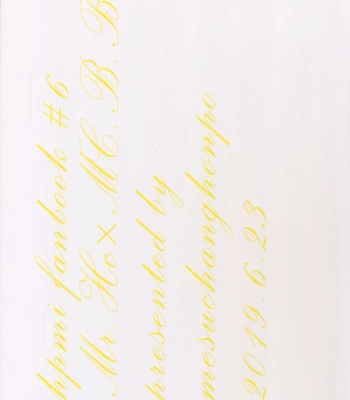 hpmi fanbook #6
Mr. Hc × MC. B. B
presented by
mesuchanghonpo
2019.6.23